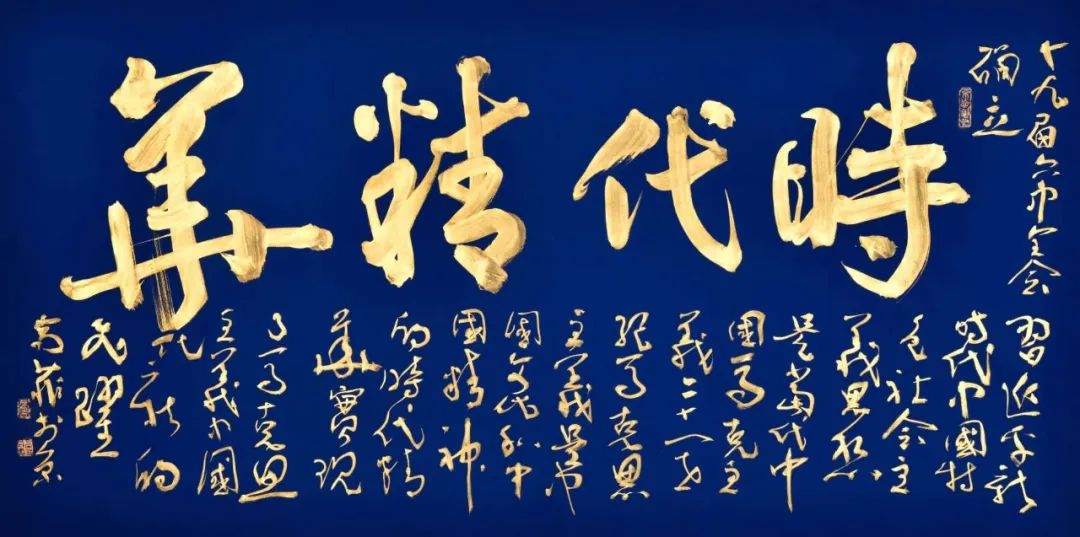 時代精華
十九届六中全会
确立
習近平新
时代中國特
色社会主
義思想
是當代中
國馬克主
義二十一世
纪马克思
主義是中
國文化和中
國精神
的時代精
華實現
了马克思
主義中國
化新的
飛躍